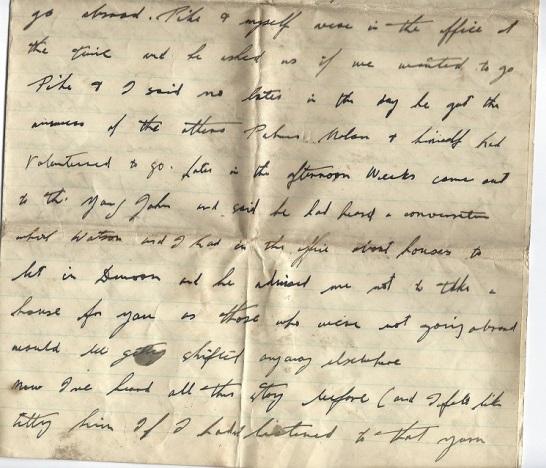 go abroad. Pike & myself were in the office at
the time and he asked us if we wanted to go
Pike & I said no later in the day he got the
answers of the others Nolan & himself had
volunteered to go. Later in the afternoon Weeks came out
to the and said he had heard a conversation
what Watson and I had in the office about houses to
let in Dunoon and he advised me not to take a
house for you as those who were not going abroad
would be shifted anyway elsewhere
now I've heard all this story before (and I felt like
him if I hadn't listened to that yarn